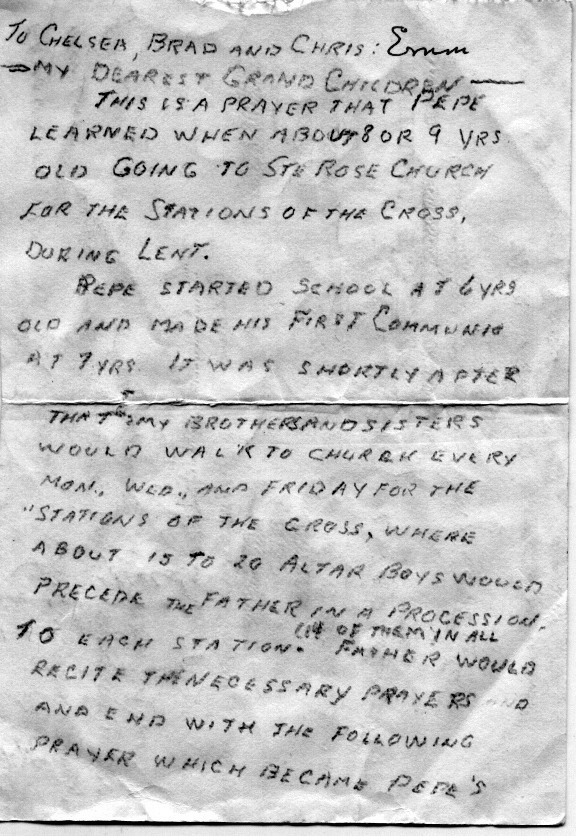 TO CHELSEA, BRAD AND CHRIS: Emm
MY DEAREST GRAND CHILDREN —
THIS IS A PRAYER THAT PEPE
LEARNED WHEN ABOUT 8 OR 9 YRS
OLD GOING TO STE ROSE CHURCH
FOR THE STATIONS OF THE CROSS,
DURING LENT.
PEPE STARTED SCHOOL AT 6 YRS
OLD AND MADE HIS FIRST COMMUNIO
AT 7 YRS. IT WAS SHORTLY AFTER
THAT MY BROTHERS AND SISTERS
WOULD WALK TO CHURCH EVERY
MON., WED., AND FRIDAY FOR THE
"STATIONS OF THE CROSS, WHERE
ABOUT 15 TO 20 ALTAR BOYS WOULD
PRECEDE THE FATHER IN A PROCESSION.
TO EACH STATION. (14 OF THEM) IN ALL FATHER WOULD
RECITE THE NECESSARY PRAYERS AND
AND END WITH THE FOLLOWING
PRAYER WHICH BECAME PEPE'S